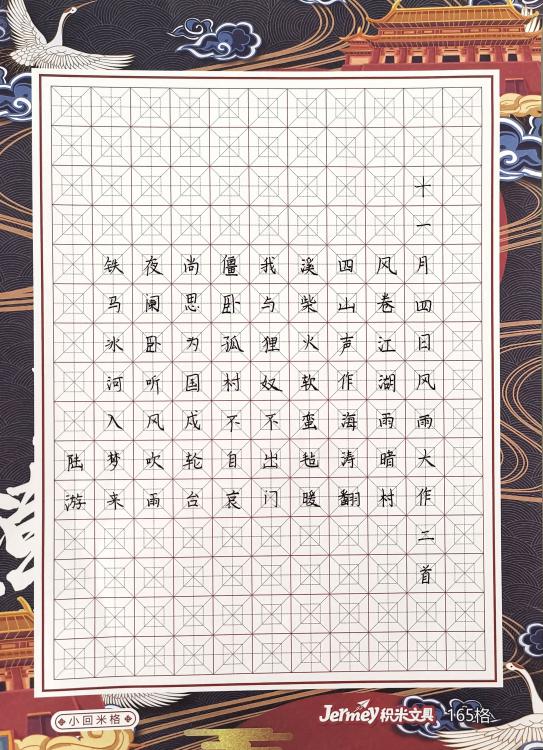 十一月四日风雨大作二首
风卷江湖雨暗村
四山声作海涛翻
溪柴火软蛮毡暖
我与狸奴不出门
僵卧孤村不自哀
尚思为国戍轮台
夜阑卧听风吹雨
铁马冰河入梦来
陆游
小回米格
Jermey积米文具 165格